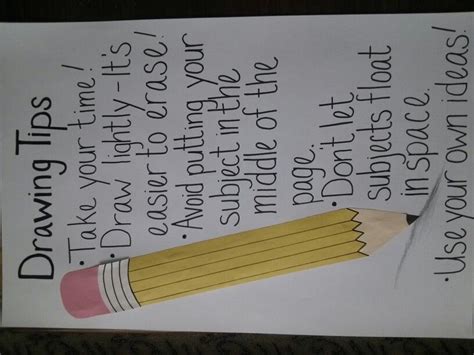 Drawing Tips
• Take your time!
• Draw lightly - It's
easier to erase!
• Avoid putting your
subject in the
middle of the
page.
• Dont let
subjects float
in space.
• Use your own ideas!